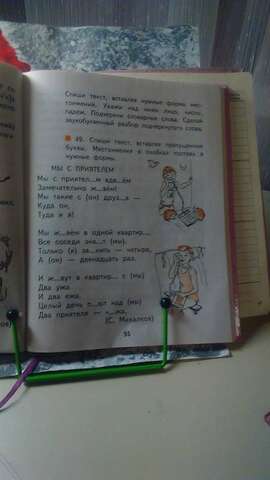 Спиши текст, вставляя нужные формы мес-
тоимений. Укажи над ними лицо, число,
падеж. Подчеркни словарные слова. Сделай
звукобуквенный разбор подчёркнутого слова.
49. Спиши текст, вставляя пропущенные
буквы. Местоимения в скобках поставь в
нужные формы.
МЫ С ПРИЯТЕЛЕМ
Мы с приятел...м вдв...ём
Замечательно ж...вём!
Мы такие с (он) друз...я —
Куда он,
Туда и я!
Мы ж...вём в одной квартир...,
Все соседи зна...т (мы).
Только (я) зв...нить — четыре,
А (он) — двенадцать раз.
И ж...вут в квартир... с (мы)
Два ужа
И два ежа,
Целый день п...ют над (мы)
Два приятеля — ч...жа.
(С. Михалков)
95